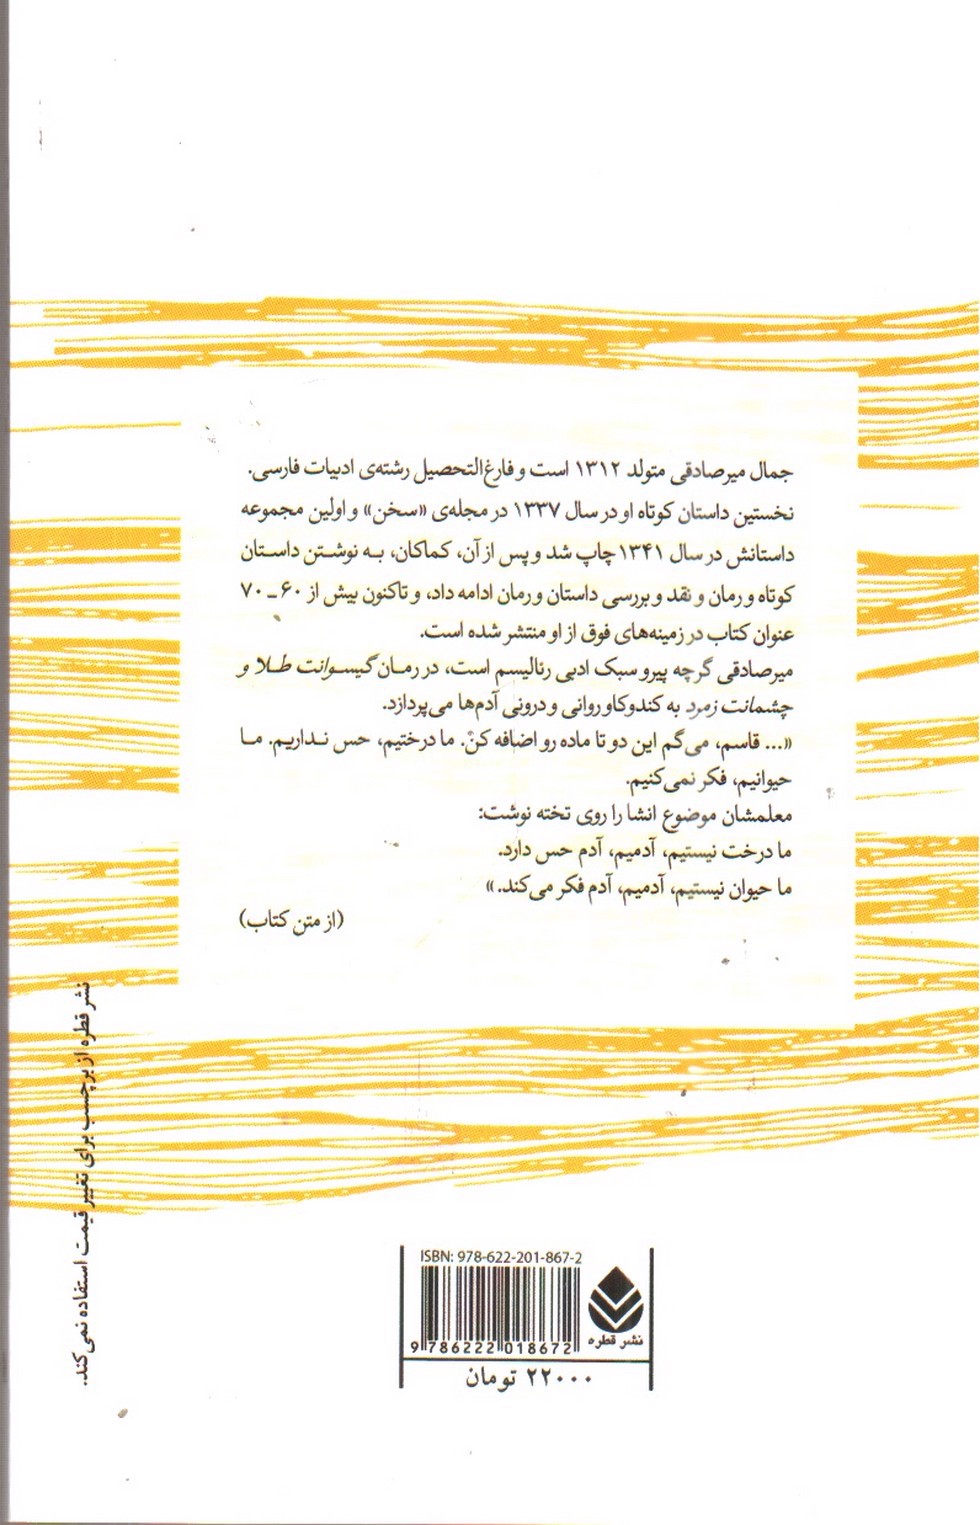 جمال میرصادقی متولد ۱۳۱۲ است و فارغ‌التحصیل رشته‌ی ادبیات فارسی.
نخستین داستان کوتاه او در سال ۱۳۳۷ در مجله‌ی «سخن» و اولین مجموعه
داستانش در سال ۱۳۴۱ چاپ شد و پس از آن، کماکان، به نوشتن داستان
کوتاه و رمان و نقد و بررسی داستان و رمان ادامه داد، و تاکنون بیش از ۶۰ - ۷۰
عنوان کتاب در زمینه‌های فوق از او منتشر شده است.
میرصادقی گرچه پیرو سبک ادبی رئالیسم است، در رمان گیسوانت طلا و
چشمانت زمرد به کندوکاو روانی و درونی آدم‌ها می‌پردازد.
«... قاسم، می‌گم این دو تا ماده رو اضافه کنْ. ما درختیم، حس نداریم. ما
حیوانیم، فکر نمی‌کنیم.
معلمشان موضوع انشا را روی تخته نوشت:
ما درخت نیستیم، آدمیم، آدم حس دارد.
ما حیوان نیستیم، آدمیم، آدم فکر می‌کند.»
(از متن کتاب)
نشر قطره از برچسب برای تغییر قیمت استفاده نمی‌کند.
ISBN: 978-622-201-867-2
9 786222 018672
نشر قطره
۲۲۰۰۰ تومان